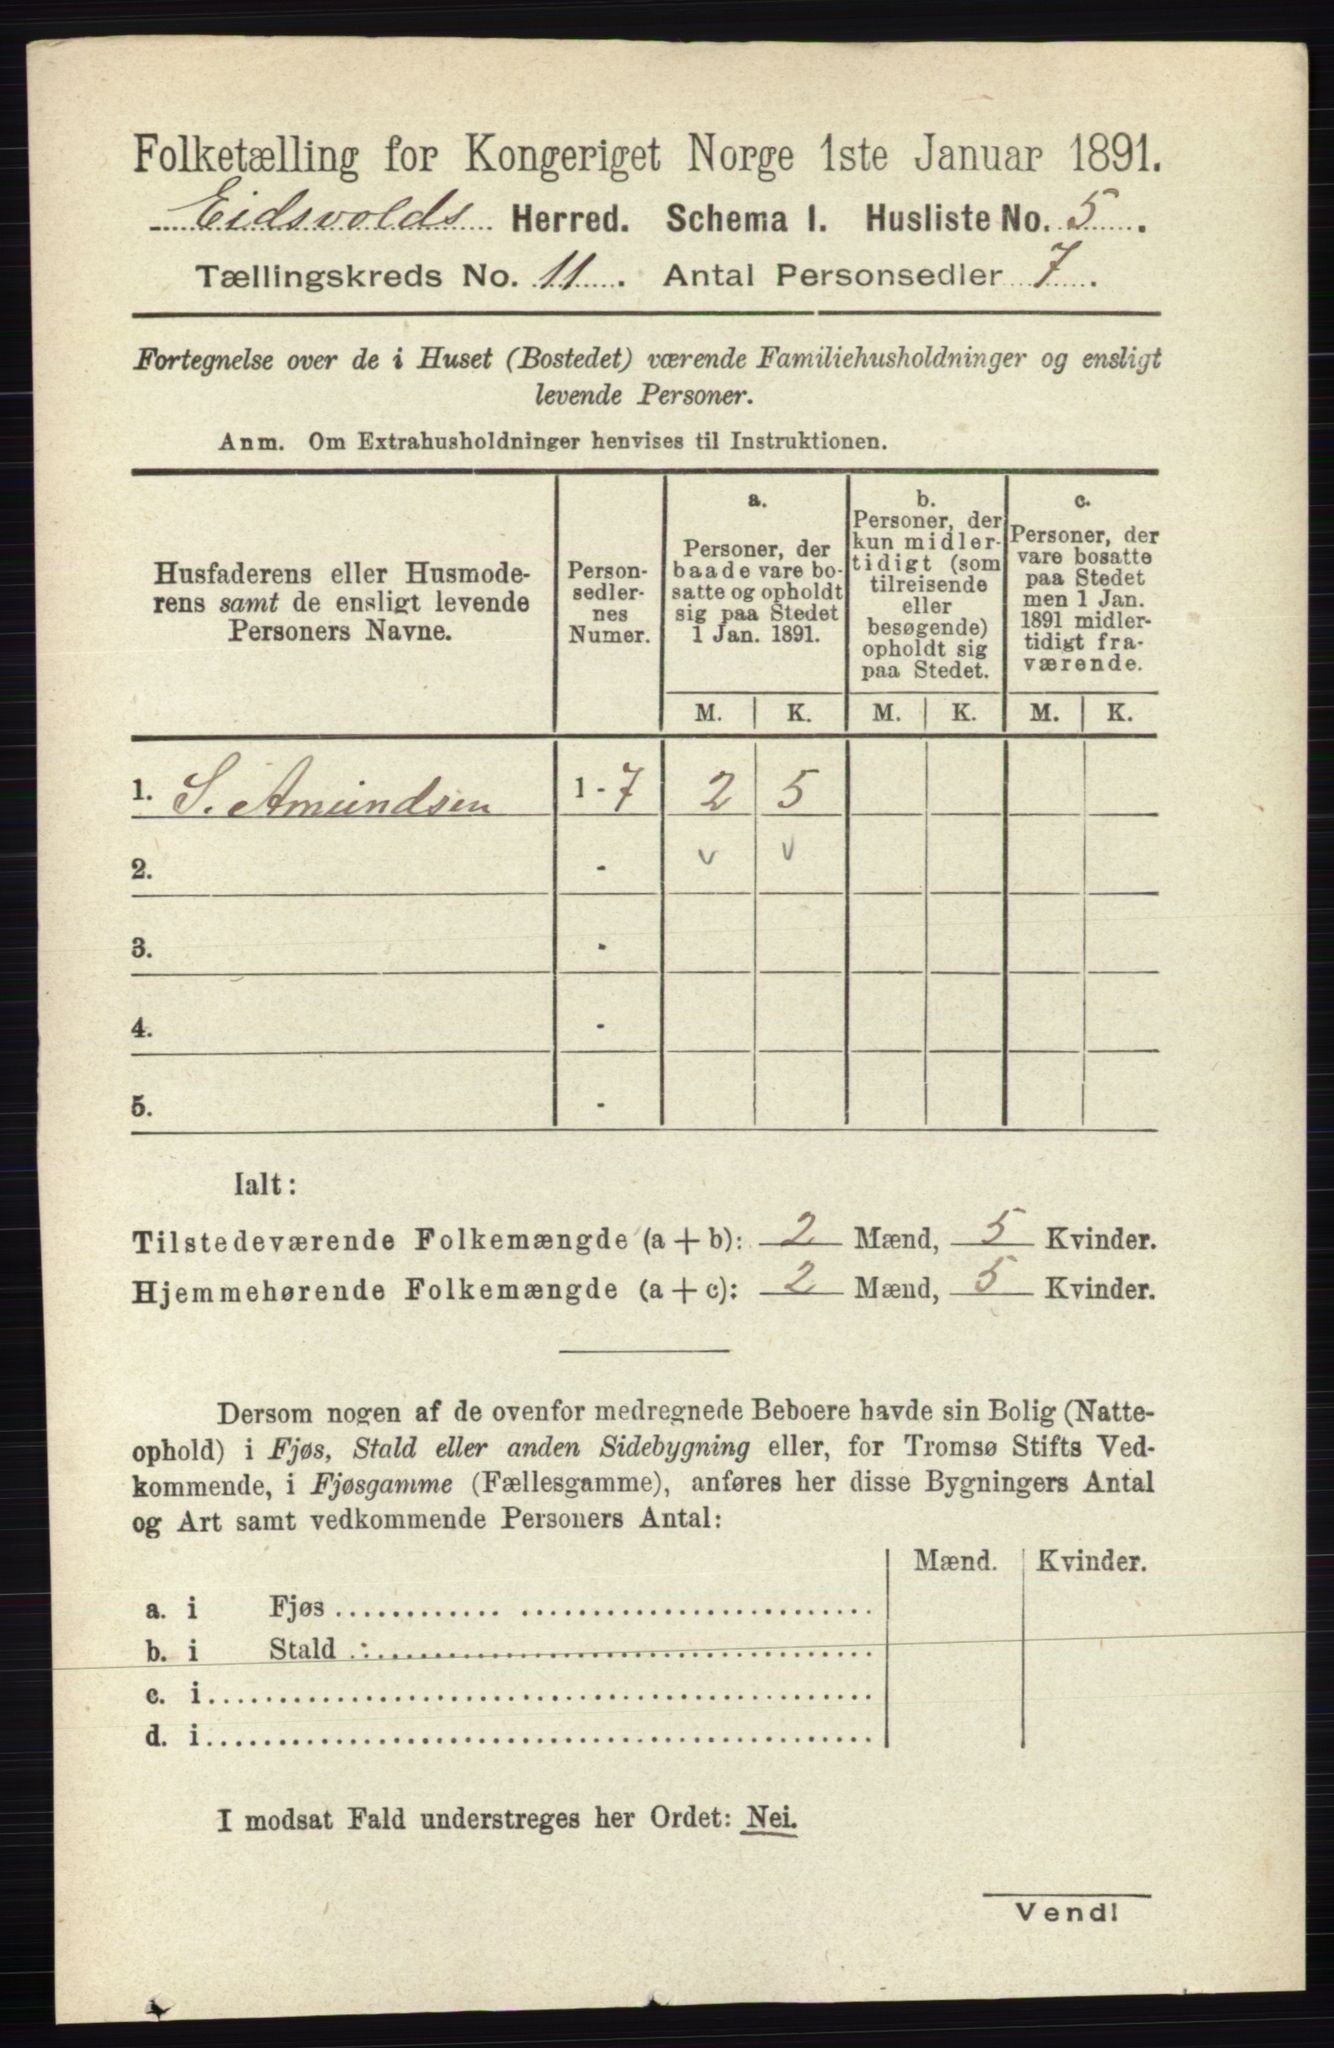 Folketælling for Kongeriget Norge 1ste Januar 1891.
Eidsvolds Herred. Schema I. Husliste No. 5.
Tællingskreds No. 11. Antal Personsedler 7.
Fortegnelse over de i Huset (Bostedet) værende Familiehusholdninger og ensligt
levende Personer.
Anm. Om Extrahusholdninger henvises til Instruktionen.
Husfaderens eller Husmode-
rens samt de ensligt levende
Personers Navne.
Person-
sedler-
nes
Numer.
a.
Personer, der
baade vare bo-
satte og opholdt
sig paa Stedet
1 Jan. 1891.
b.
Personer, der
kun midler-
tidigt (som
tilreisende
eller
besøgende)
opholdt sig
paa Stedet.
c.
Personer, der
vare bosatte
paa Stedet
men 1 Jan.
1891 midler-
tidigt fra-
værende.
M. K. M. K. M. K.
1. S. Amundsen 1-7 2 5
2. - v v
3. -
4. -
5. -
Ialt:
Tilstedeværende Folkemængde (a + b): 2 Mænd, 5 Kvinder.
Hjemmehørende Folkemængde (a + c): 2 Mænd, 5 Kvinder.
Dersom nogen af de ovenfor medregnede Beboere havde sin Bolig (Natte-
ophold) i Fjøs, Stald eller anden Sidebygning eller, for Tromsø Stifts Ved-
kommende, i Fjøsgamme (Fællesgamme), anføres her disse Bygningers Antal
og Art samt vedkommende Personers Antal:
Mænd. Kvinder.
a. i Fjøs
b. i Stald
c. i
d. i
I modsat Fald understreges her Ordet: Nei.
Vend!